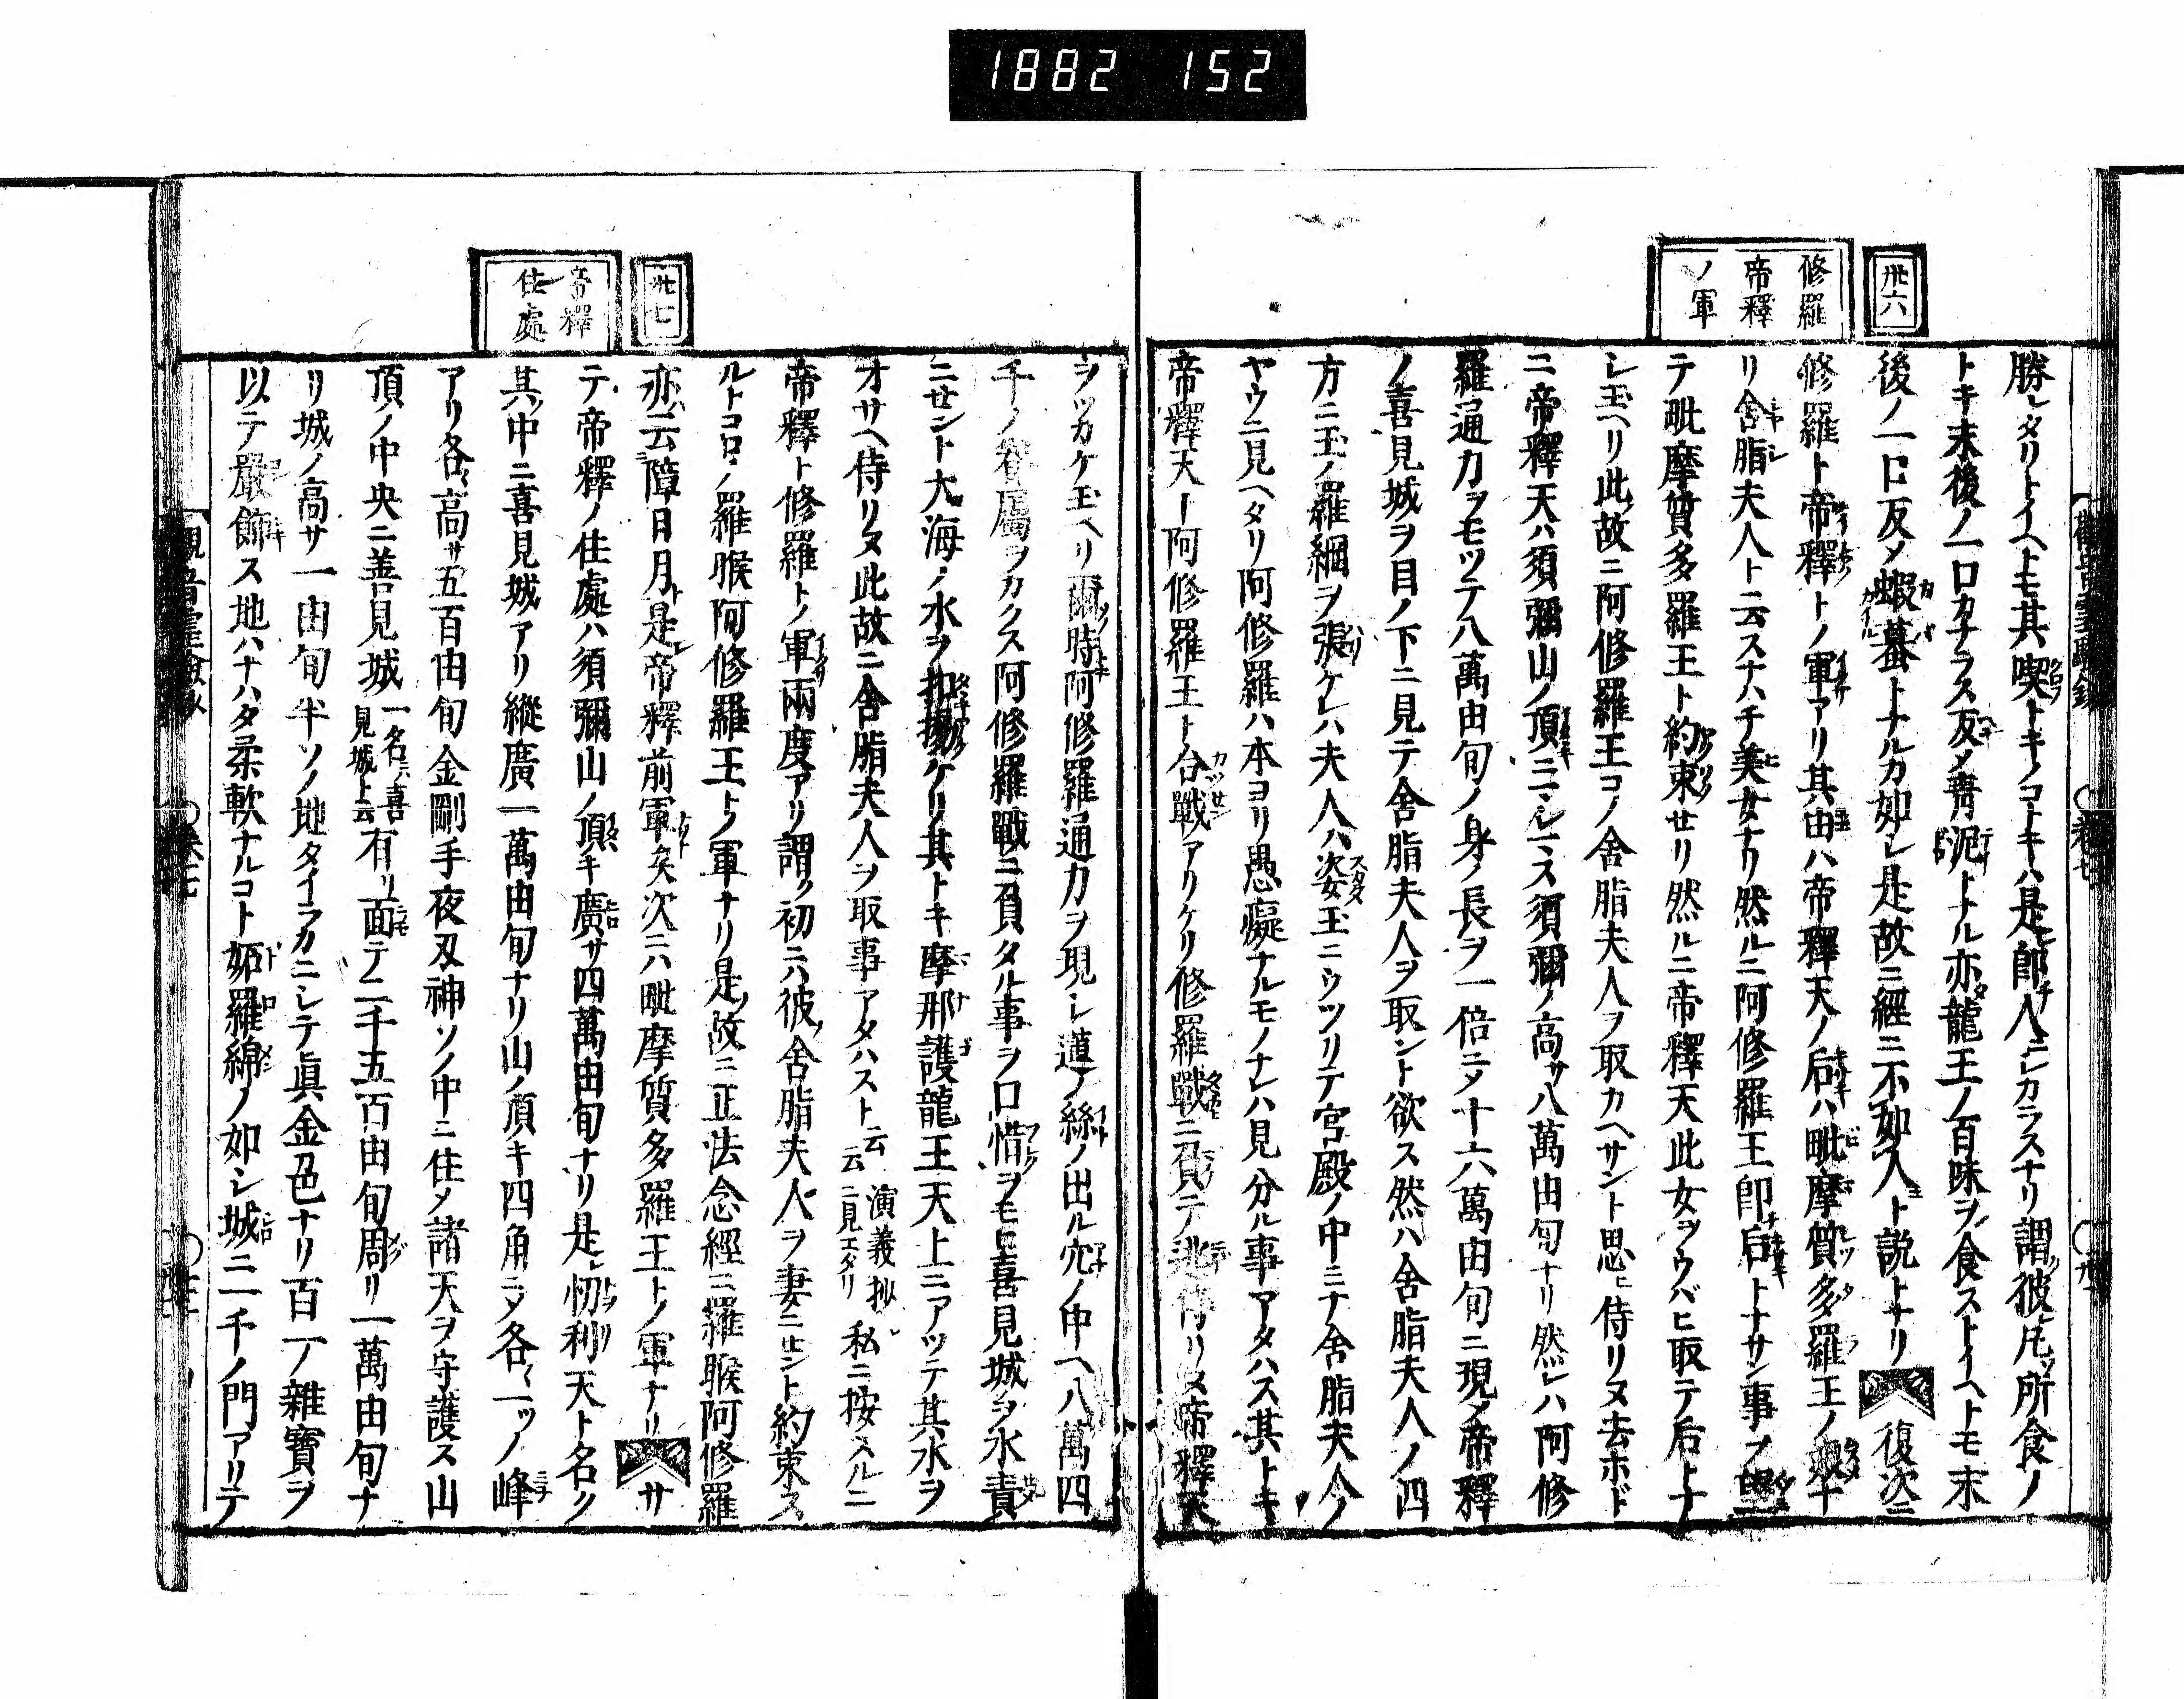 1882 152
卅六
修羅
帝釋
ノ軍
勝レタリトイヘトモ其喫トキノコトキハ是即人ニシカラスナリ謂彼凡ソ所食ノ
トキ末後ノ一口カナラス反メ青泥トナル亦龍王ノ百味ヲ食ストイヘトモ末
後ノ一口反メ蝦蟇トナルカ如レ是故ニ經ニ不如人ト説トナリ 復次ニ
修羅ト帝釋トノ軍アリ其由ハ帝釋天ノ后ハ毗摩質多羅王ノ
リ舍脂夫人ト云スナハチ美女ナリ然ルニ阿修羅王卽后トナサン事ヲ望
テ毗摩質多羅王ト約束セリ然ルニ帝釋天此女ヲウバヒ取テ后トナ
レ玉ヘリ此故ニ阿修羅王コノ舍脂夫人ヲ取カヘサント思ヒ侍リヌ去ホド
ニ帝釋天ハ須彌山ノ頂ニマレマス須彌ノ高サ八萬由旬ナリ然レハ阿修
羅通力ヲモツテ八萬由旬ノ身ノ長ヲ一倍ニメ十六萬由旬ニ現メ帝釋
ノ喜見城ヲ目ノ下ニ見テ舍脂夫人ヲ取ント欲ス然ハ舍脂夫人ノ四
方ニ玉ノ羅網ヲ張ケレハ夫人ハ姿玉ニウツリテ宮殿ノ中ミナ舍脂夫人ノ
ヤウニ見ヘタリ阿修羅ハ本ヨリ愚癡ナルモノナレハ見分ル事アタハス其トキ
帝釋天ト阿修羅王ト合戰アリケリ修羅戰ニ負テ逃侍リヌ帝釋天
卅七
帝釋
住處
ヲツカケ玉ヘリ爾時阿修羅通力ヲ現レ蓮ノ絲ノ出ル穴ノ中ヘ八萬四
千ノ眷屬ヲカクス阿修羅戰ニ負タル事ヲ口惜ヲモヒ喜見城ヲ水責
ニセント大海ノ水ヲ扣揚ケリ其トキ摩那護龍王天上ニアツテ其水ヲ
オサヘ侍リヌ此故ニ舍脂夫人ヲ取事アタハスト云云 演義抄ニ見エタリ 私ニ按スルニ
帝釋ト修羅トノ軍兩度アリ謂ク初ニハ彼ノ舍脂夫人ヲ妻ニセント約束ス
ルトコロノ羅睺阿修羅王トノ軍ナリ是ノ故ニ正法念經ニ羅睺阿修羅
亦云障日月ト是レ帝釋前軍矣次ニハ毗摩質多羅王トノ軍ナリ サ
テ帝釋ノ住處ハ須彌山ノ頂キ廣サ四萬由旬ナリ是レ忉利天ト名ク
其中ニ喜見城アリ縱廣一萬由旬ナリ山ノ頂キ四角ニメ各々一ツノ峰
アリ各高サ五百由旬金剛手夜叉神ソノ中ニ住メ諸天ヲ守護ス山
頂ノ中央ニ善見城 一名ハ喜見城ト云 有リ面テ二千五百由旬周リ一萬由旬ナ
リ城ノ高サ一由旬半ソノ地タイラカニレテ眞金色ナリ百一ノ雜寶ヲ
以テ嚴飾ス地ハナハタ柔軟ナルコト妬羅綿ノ如レ城ニ一千ノ門アリテ